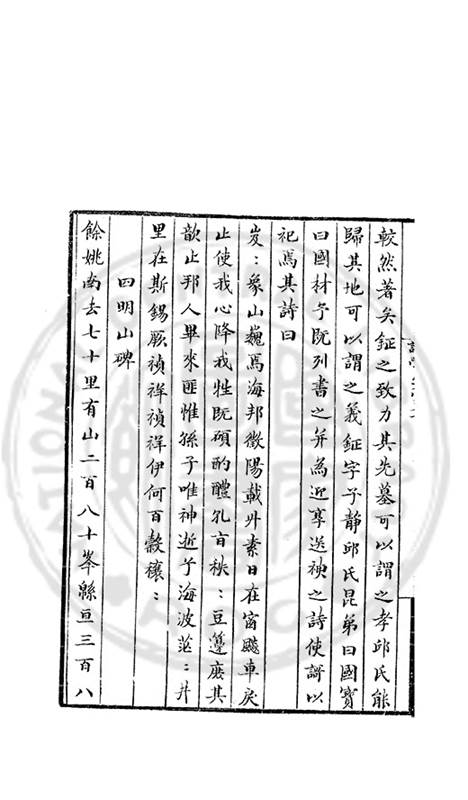 較然著矣鉦之致力其先墓可以謂之孝邱氏能
歸其地可以謂之義鉦字子靜邱氏昆弟曰國寶
曰國材予既列書之并為迎享送神之詩使謌以
祀焉其詩曰
岌:象山巍焉海邦徽陽載外素日在窗飈車戾
止使我心降我牲既碩酌醴孔旨秩:豆籩庶其
歆止邦人畢來匪惟孫子唯神逝兮海波茫:井
里在斯錫厥禎祥禎祥伊何百穀穰:
四明山碑
餘姚南去七十里有山二百八十峯緜亘三百八